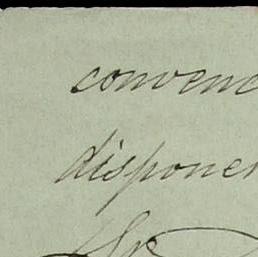 convenc
disponer
Sr